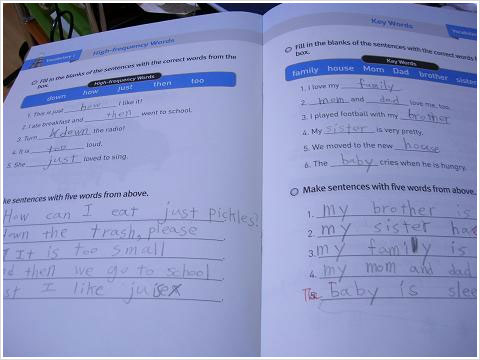 Vocabulary 1
High-frequency Words
Fill in the blanks of the sentences with the correct words from the
box.
High-frequency Words
down how just then too
1. This is just how I like it!
2. I ate breakfast and then went to school.
3. Turn down the radio!
4. It is too loud.
5. She just loved to sing.
ke sentences with five words from above.
How can I eat just pickles?
down the trash, please
It is too small
nd then we go to school
st I like
Key Words
Vocabulary
Fill in the blanks of the sentences with the correct words
box.
Key Words
family house Mom Dad brother sister
1. I love my family
2. mom and dad love me, too.
3. I played football with my brother
4. My sister is very pretty.
5. We moved to the new house
6. The baby cries when he is hungry.
Make sentences with five words from above.
1. my brother is
2. my sister ha
3. my family is
4. my mom and dad
5. baby is slee